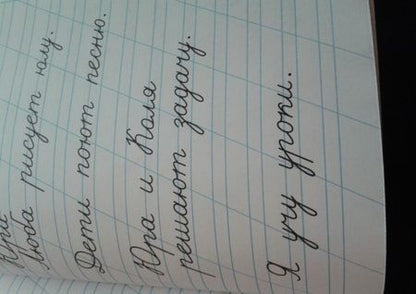 Люба рисует юлу.
Дети поют песню.
Юра и Коля
решают задачу.
Я учу уроки.